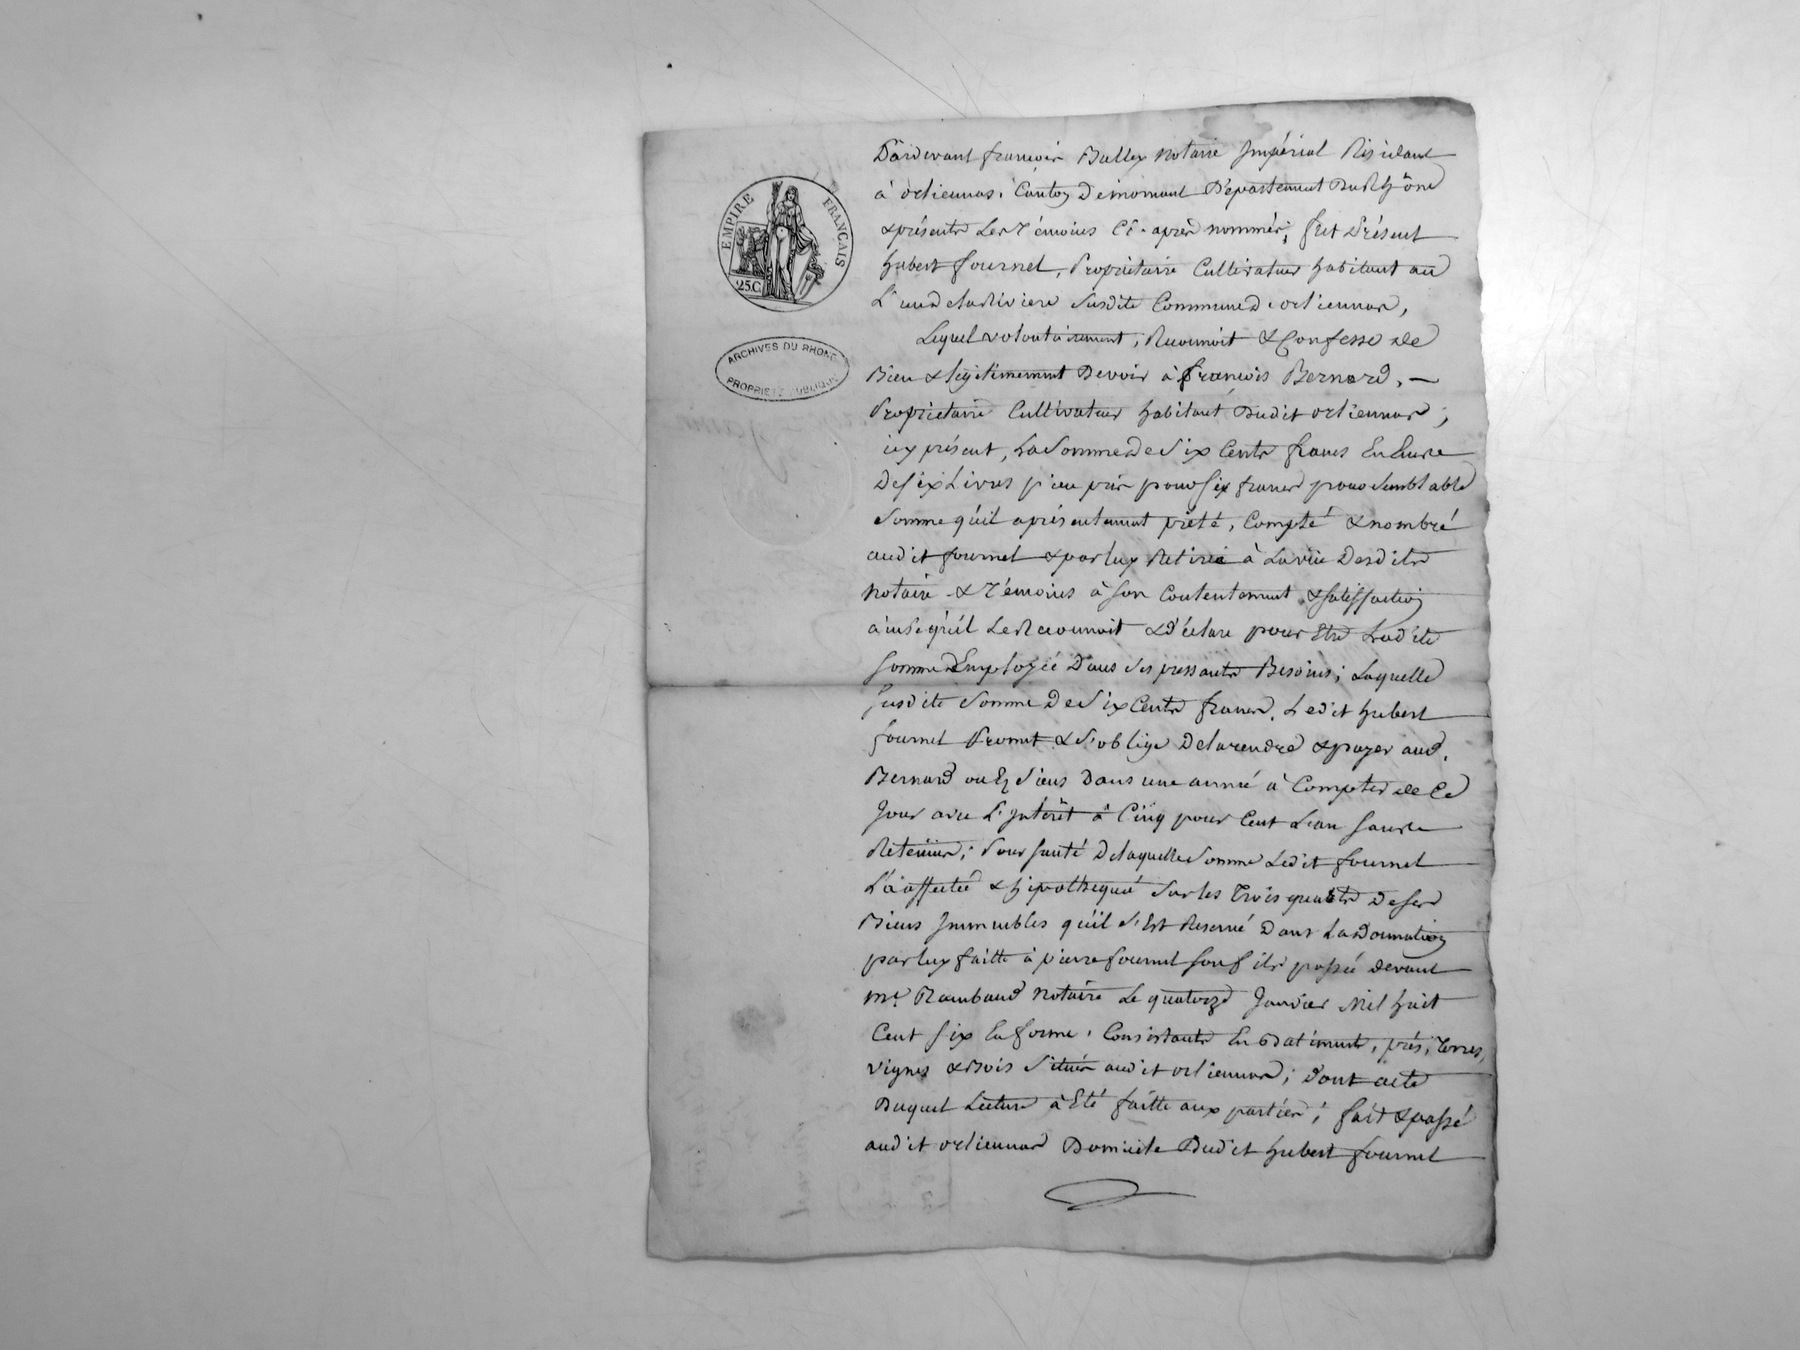 EMPIRE FRANÇAIS
25.C.
ARCHIVES DU RHONE
PROPRIETE PUBLIQUE
Pardevant françois Ballex notaire Impérial Résidant
à orliennas, Canton De mornant Département Du Rhône
& présents Les Témoins Ci-après nommés, fut Présent
hubert fournel, Propriétaire Cultivateur habitant au
Lieu de la Riviere Susdite Commune d'orliennas,
Lequel volontairement, Reconnoit & Confesse de
Bien & légitimement Devoir à françois Bernard, —
Propriétaire Cultivateur habitant Dudit orliennas ;
icy présent, La Somme de Six Cents francs En Ecus
De six Livres pieu pris pour six francs pour Semblable
Somme qu'il a présentement prêté, Compté & nombré
audit fournel & par luy Retirée à La vüe Desdits
notaire & Témoins à son Contentement & satisfaction
ainsi qu'il Le Reconnoit & déclare pour Etre Ladite
somme Employée Dans Ses pressants Besoins ; Laquelle
susdite Somme De Six Cents francs, Ledit hubert
fournel Promet & S'oblige De la rendre & payer aud.
Bernard ou Es Siens Dans une année à Compter de Ce
Jour avec L'Intérêt à Cinq pour Cent L'an sans
Retenüe ; Pour sureté De laquelle Somme Ledit fournel
L'a affectée & hipothequé Sur les Trois quarts De ses
Biens Immeubles qu'il S'Est Reservé Dans La Donnation
par luy faitte à pierre fournel son fils passée devant
Me. Rambaud notaire Le quatorze Janvier Mil huit
Cent six En forme, Consistants En Batiments, prés, Terres,
vignes & Bois Situés audit orliennas ; Dont acte
Duquel Lecture à Eté faitte aux parties ; fait & passé
audit orliennas Domicile Dudit hubert fournel